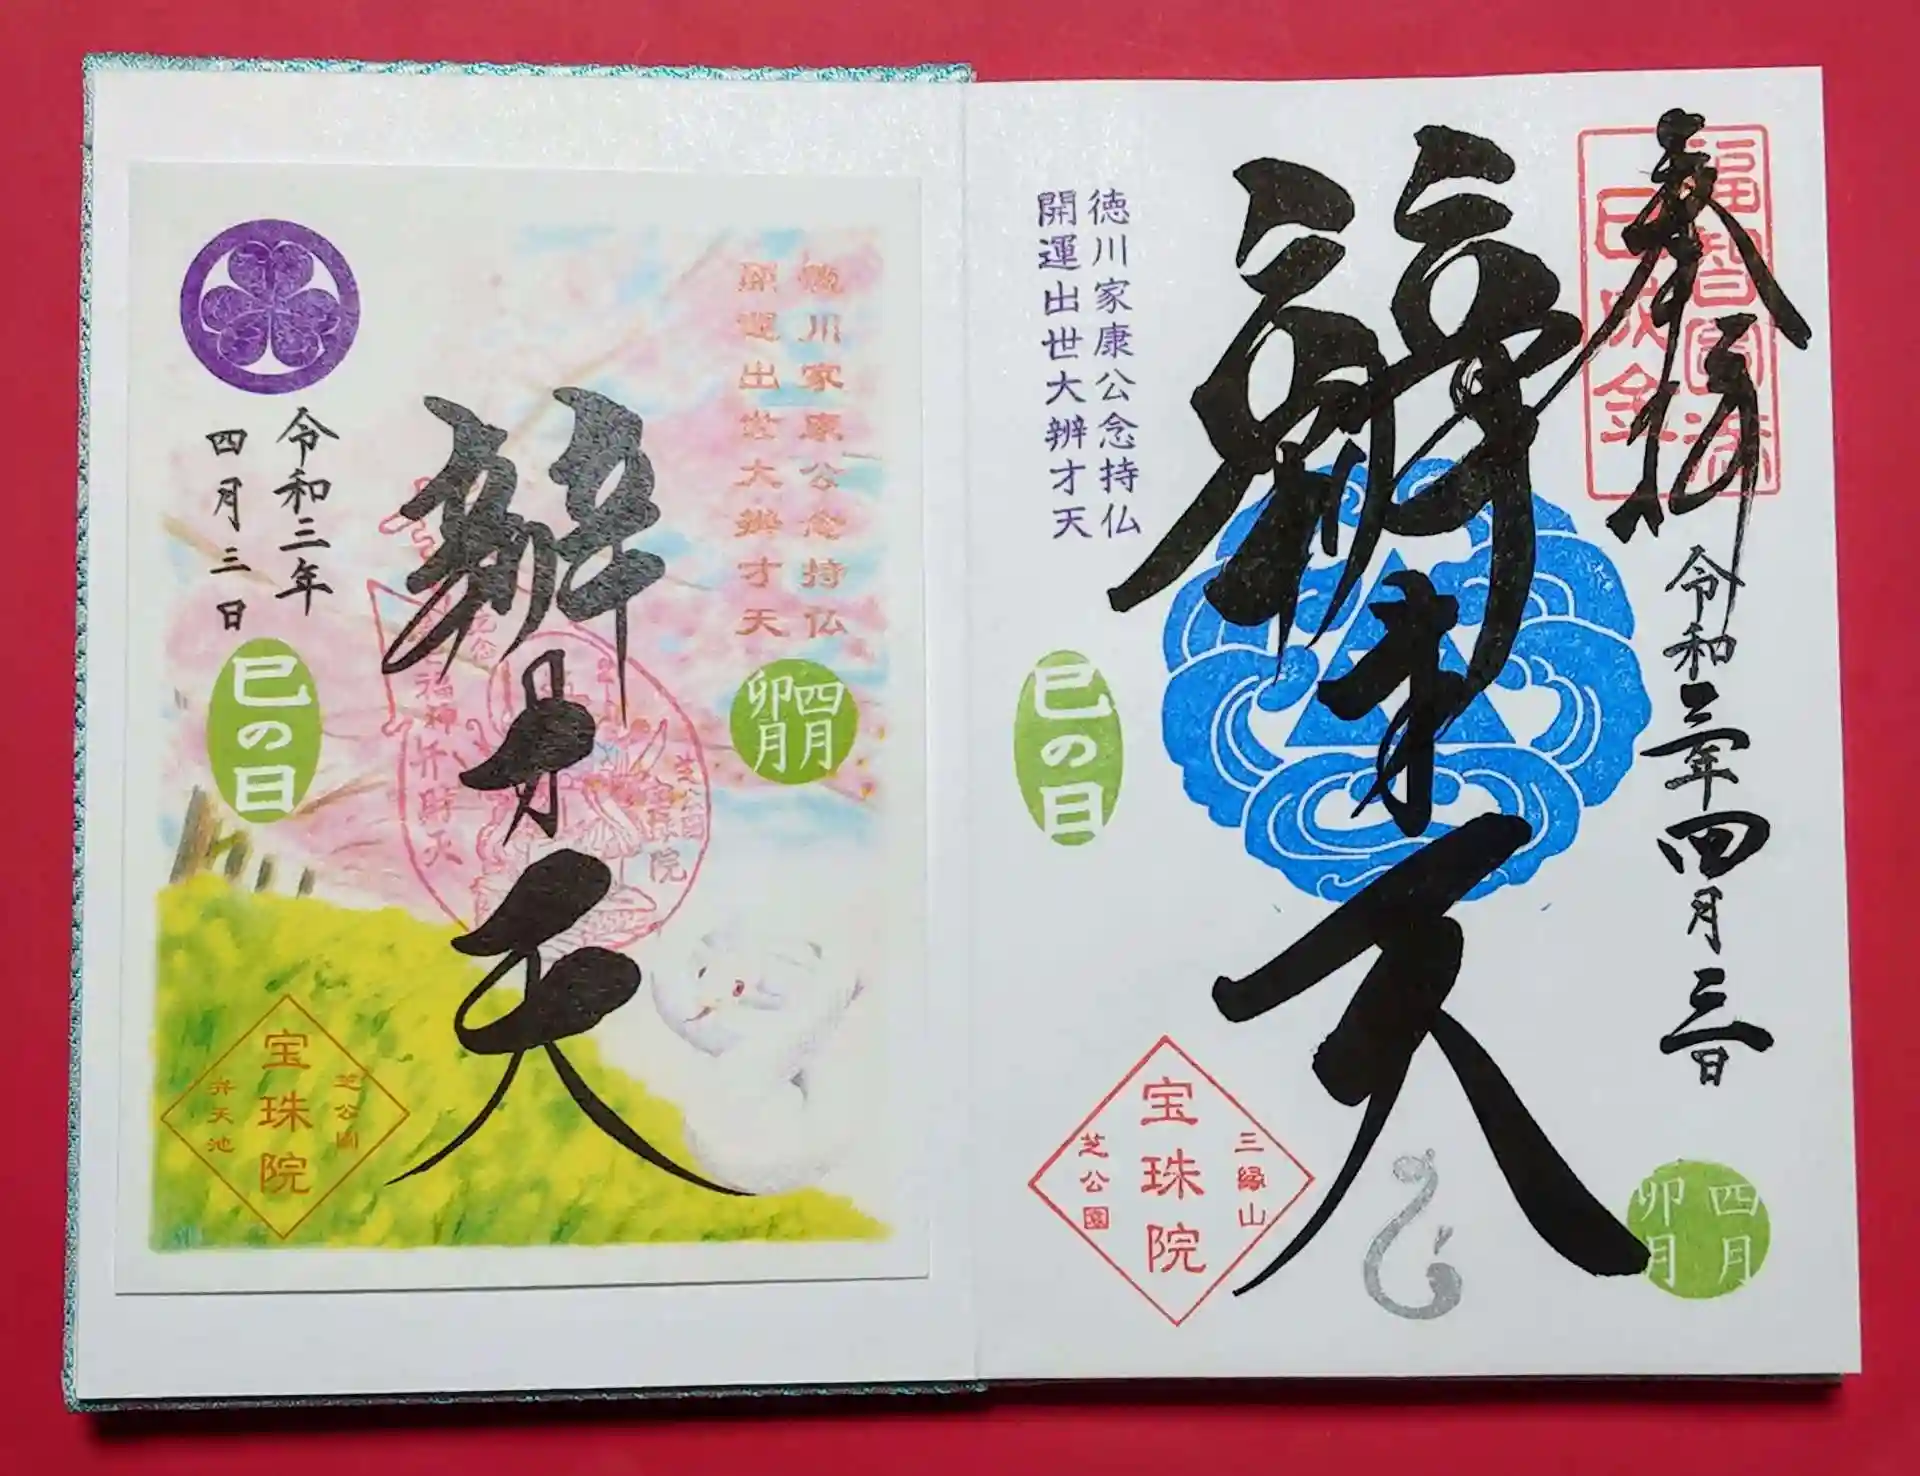 奉拝
令和三年四月三日
福智圓満
巳成金
辨才天
徳川家康公念持仏
開運出世大辨才天
巳の日
三縁山
宝珠院
芝公園
四月
卯月
徳川家康公念持仏
開運出世大辨才天
四月
卯月
辨才天
芝公園
宝珠院
七福神弁財天
令和三年
四月三日
巳の日
芝公園
宝珠院
弁天池